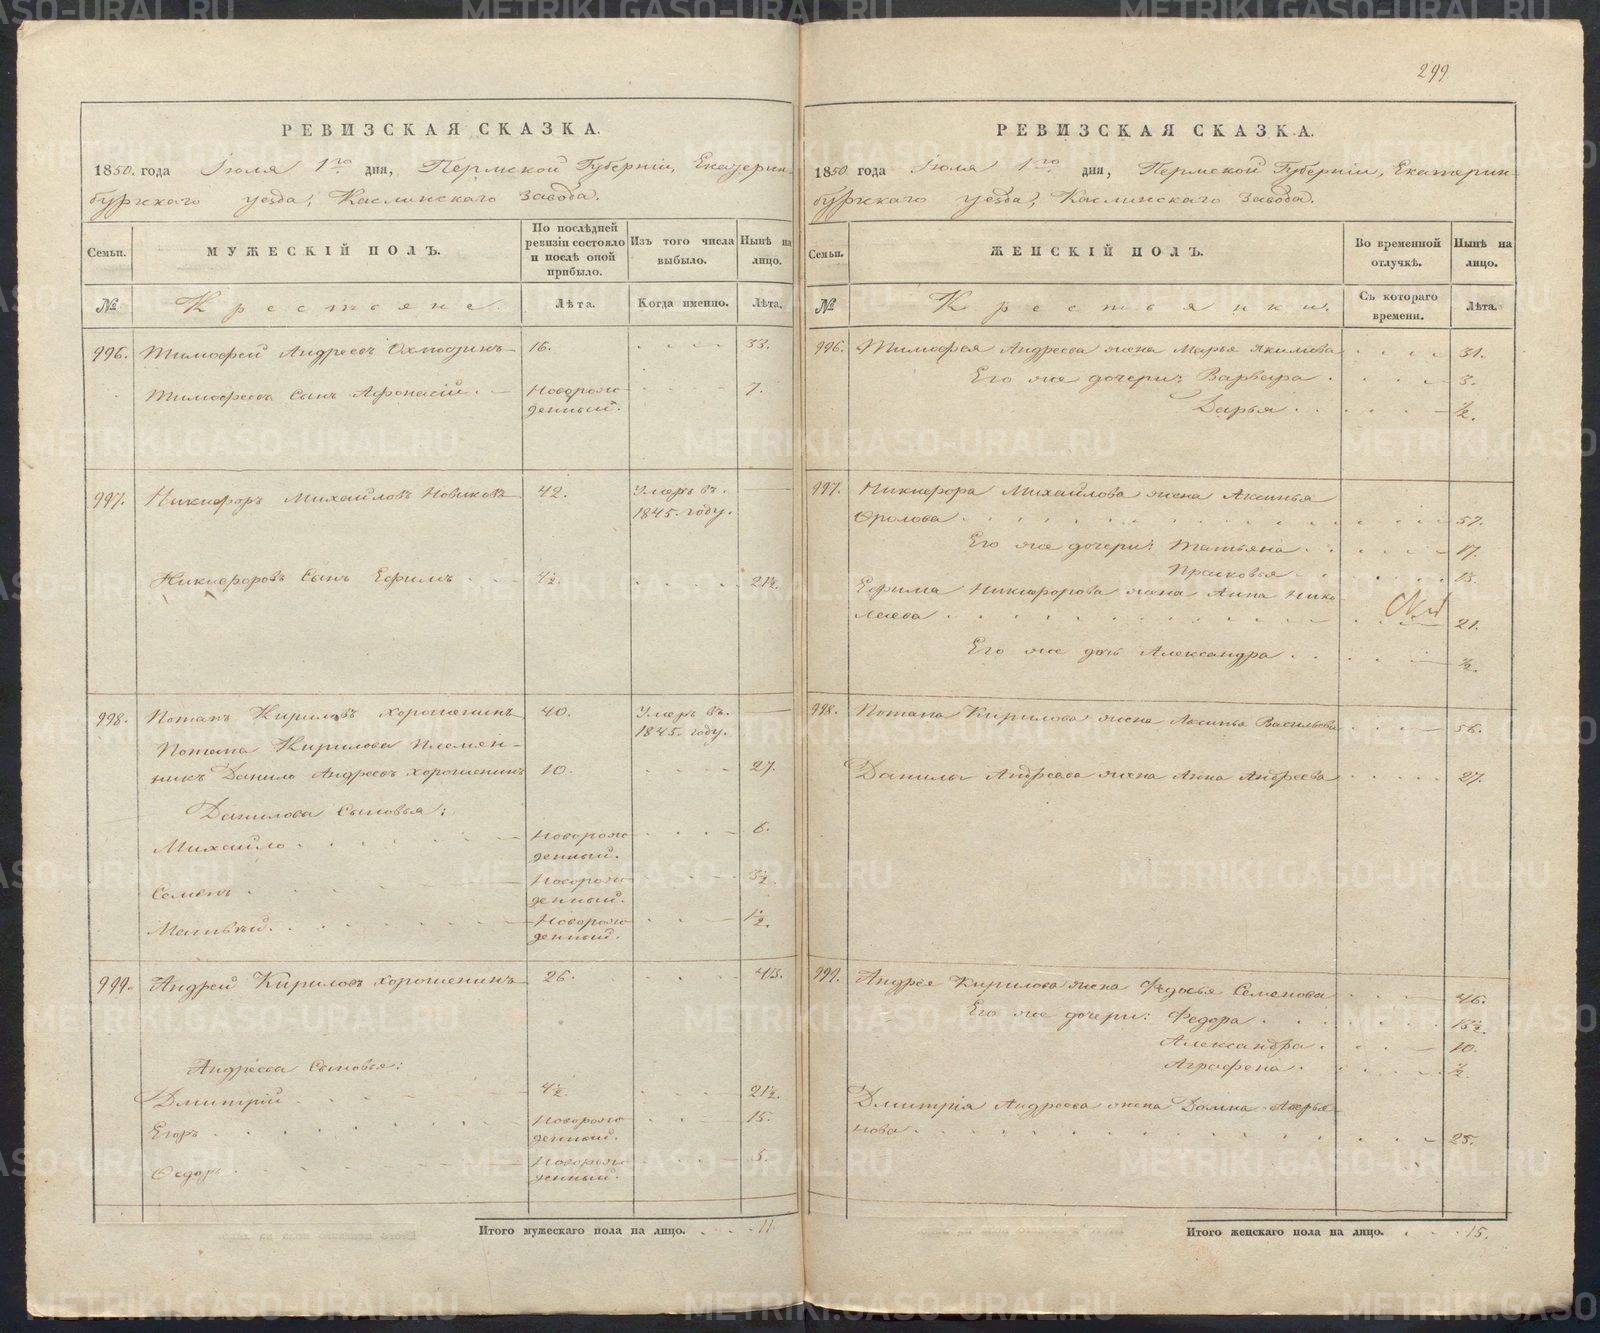 299
РЕВИЗСКАЯ СКАЗКА.
1850. года Іюля 1го дня, Пермской Губерніи, Екатерин-
бургскаго уезда, Каслинскаго завода.
Семьи.
МУЖЕСКІЙ ПОЛЪ.
По послѣдней ревизіи состояло и послѣ оной прибыло.
Изъ того числа выбыло.
Нынѣ на лицо.
№ Крестьяне. Лѣта. Когда именно. Лѣта.
996. Тимофей Андреевъ 16. 33.
Тимофеевъ Сынъ Афонасій. Новорож- 7.
денный.
997. Никифоръ Михайловъ Новиковъ 42. Умеръ въ
1845. году.
Никифоровъ Сынъ Ефимъ 4½. 21½.
998. Потапъ Кириловъ Хорошенинъ 40. Умеръ въ.
1845. году.
Потапа Кирилова Племен-
никъ Данило Андреевъ Хорошенинъ 10. 27.
Данилова Сыновья:
Михайло. Новорож- 6.
денный.
Семенъ Новорож- 3½.
денный.
Матвѣй. Новорож- 1½.
денный.
999. Андрей Кириловъ Хорошенинъ 26.
Андреева Сыновья:
Дмитрій 4½. 21½.
Егоръ Новорож- 15.
денный.
Федоръ Новорож- 5.
денный.
Итого мужескаго пола на лицо. 11.
РЕВИЗСКАЯ СКАЗКА.
1850 года Іюля 1го дня, Пермской Губерніи, Екатерин-
бургскаго уезда, Каслинскаго завода.
Семьи.
ЖЕНСКІЙ ПОЛЪ.
Во временной отлучкѣ.
Нынѣ на лицо.
№ Крестьянки. Съ котораго времени. Лѣта.
996. Тимофея Андреева жена Марья Якилива 31.
Его же дочери: Варвара 3.
Дарья ½.
997. Никифора Михайлова жена Аксинья
Фролова 57.
Его же дочери: Татьяна 17.
Прасковья 13.
Ефима Никифорова жена Анна Нико
лаева 21.
Его же дочь Александра ½.
998. Потапа Кирилова жена Аксинья Васильева 56.
Данилы Андреева жена Анна Андреева 27.
999. Андрея Кирилова жена Федосья Семенова 46.
Его же дочери: Федора 15½.
Александра 10.
Аграфена ½.
Дмитрія Андреева жена Домна Аверья-
нова 25.
Итого женскаго пола на лицо. 15.
METRIKI.GASO-URAL.RU